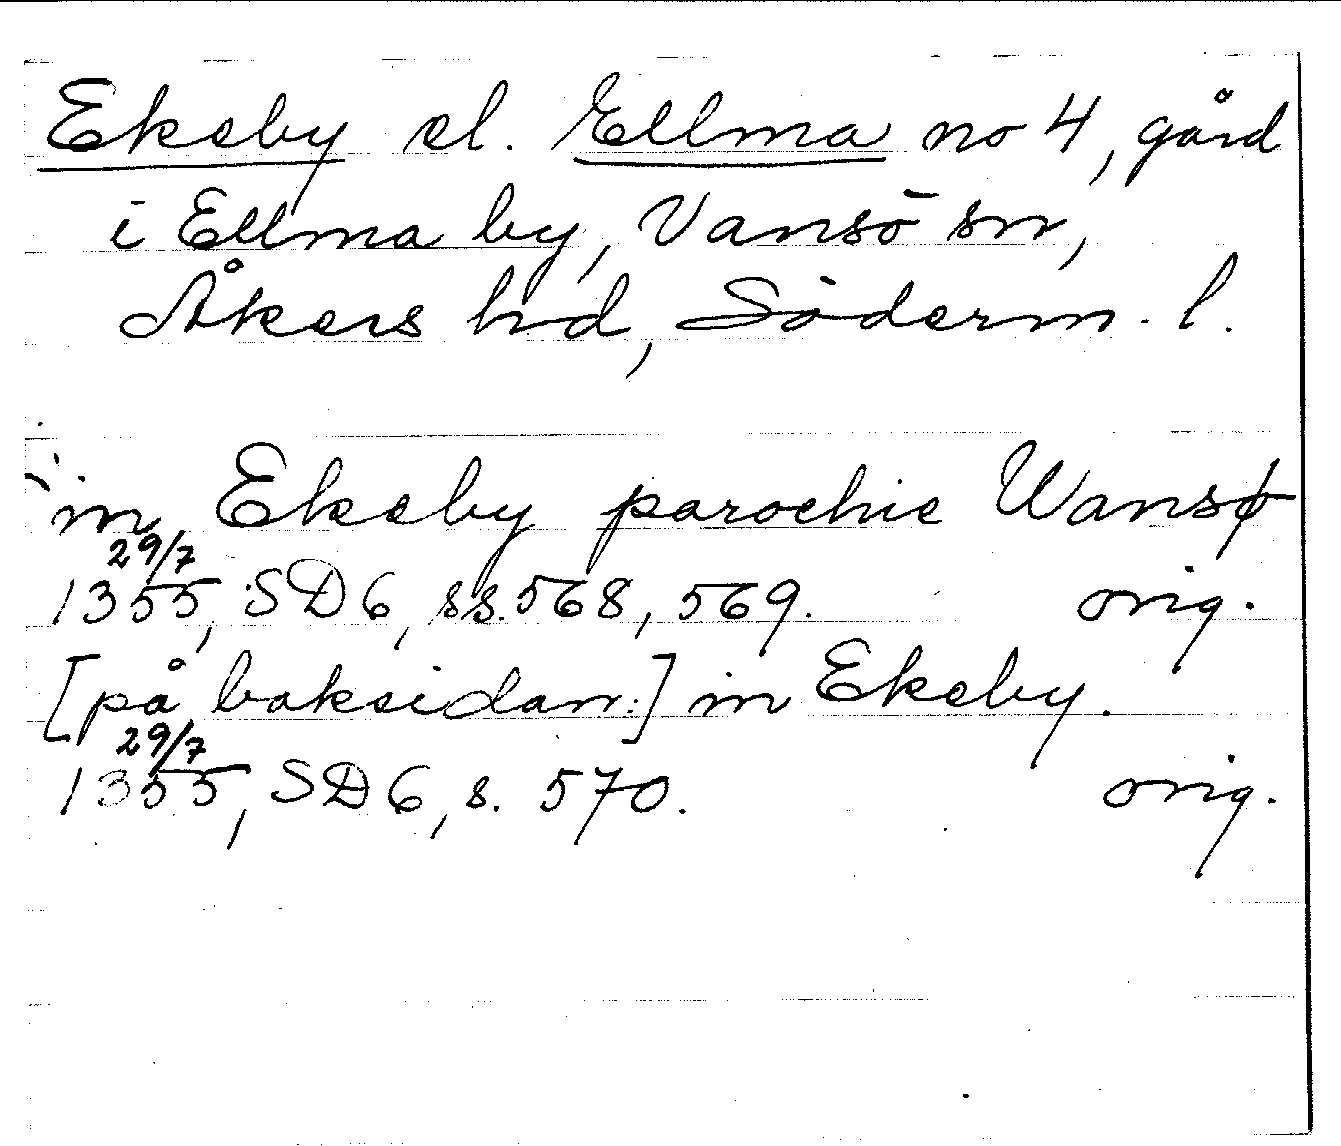 Ekeby el. Ellma no 4, gård
i Ellma by, Vansö sn,
Åkers hd, Söderm. l.
in Ekeby parochie Wansø
29/7
1355, SD 6, ss. 568, 569. orig.
[på baksidan:] in Ekeby.
29/7
1355, SD 6, s. 570. orig.